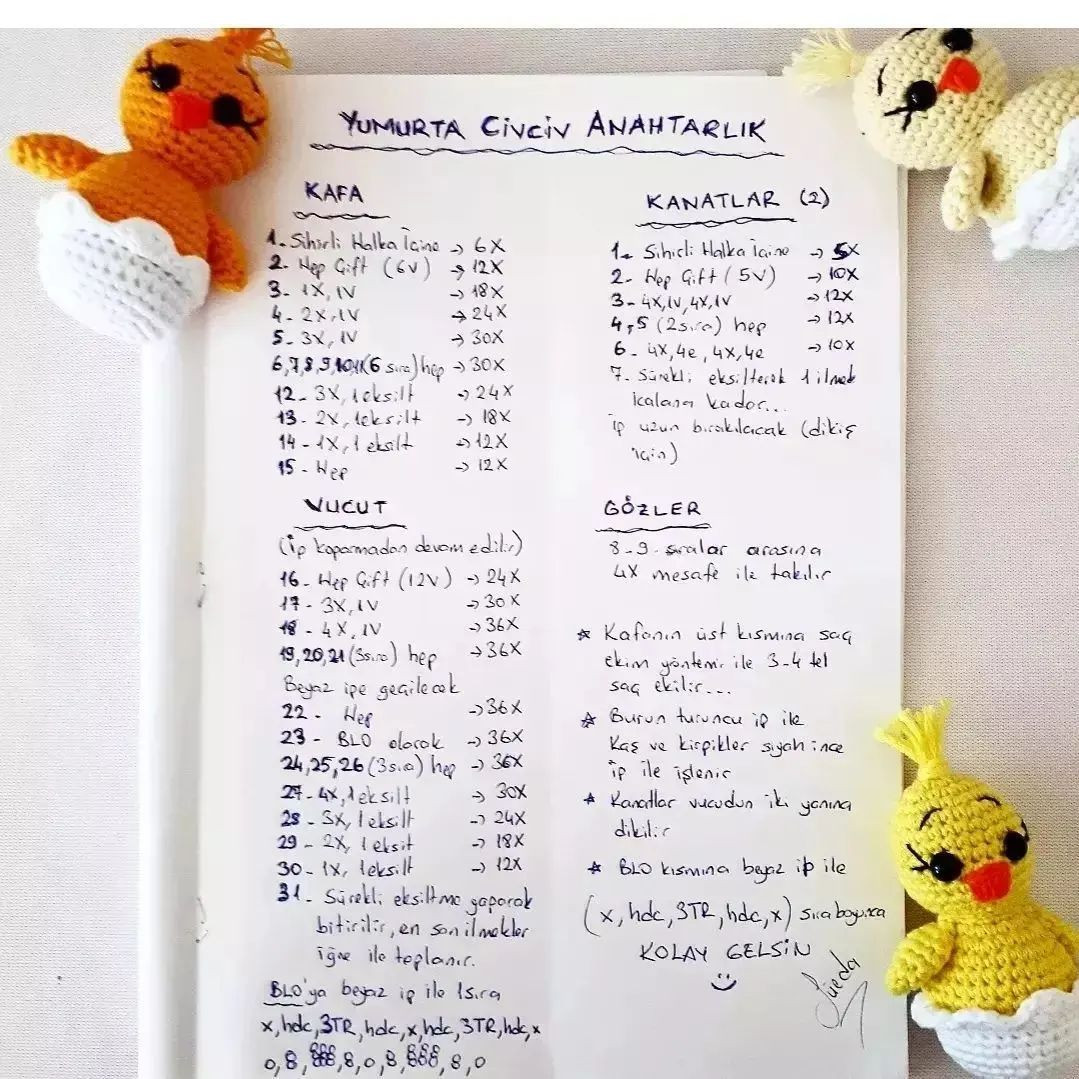 YUMURTA CİVCİV ANAHTARLIK
KAFA
1- Sihirli Halka İçine → 6X
2- Hep Çift (6V) → 12X
3- 1X, 1V → 18X
4- 2X, 1V → 24X
5- 3X, 1V → 30X
6,7,8,9,10,11 (6 sıra) hep → 30X
12- 3X, 1 eksilt → 24X
13- 2X, 1 eksilt → 18X
14- 1X, 1 eksilt → 12X
15- Hep → 12X
VUCUT
(İp koparmadan devam edilir)
16- Hep Çift (12V) → 24X
17- 3X, 1V → 30X
18- 4X, 1V → 36X
19,20,21 (3sıra) hep → 36X
Beyaz ipe geçilecek
22- Hep → 36X
23- BLO olarak → 36X
24,25,26 (3sıra) hep → 36X
27- 4X, 1 eksilt → 30X
28- 3X, 1 eksilt → 24X
29- 2X, 1 eksit → 18X
30- 1X, 1 eksilt → 12X
31- Sürekli eksiltme yaparak
bitirilir, en son ilmekler
iğne ile toplanır.
BLO'ya beyaz ip ile 1sıra
x, hdc, 3TR, hdc, x, hdc, 3TR, hdc, x
KANATLAR (2)
1- Sihirli Halka İçine → 5X
2- Hep Çift (5V) → 10X
3- 4X,1V,4X,1V → 12X
4,5 (2sıra) hep → 12X
6- 4X,4e,4X,4e → 10X
7- Sürekli eksilterek 1 ilmek
kalana kadar...
ip uzun bırakılacak (dikiş
için)
GÖZLER
8-9. sıralar arasına
4X mesafe ile takılır
☆ Kafanın üst kısmına saç
ekim yöntemi ile 3-4 tel
saç ekilir...
☆ Burun turuncu ip ile
Kaş ve kirpikler siyah ince
ip ile işlenir
☆ Kanatlar vucudun iki yanına
dikilir
☆ BLO kısmına beyaz ip ile
(x, hdc, 3TR, hdc, x) sıra boyunca
KOLAY GELSİN
Süeda